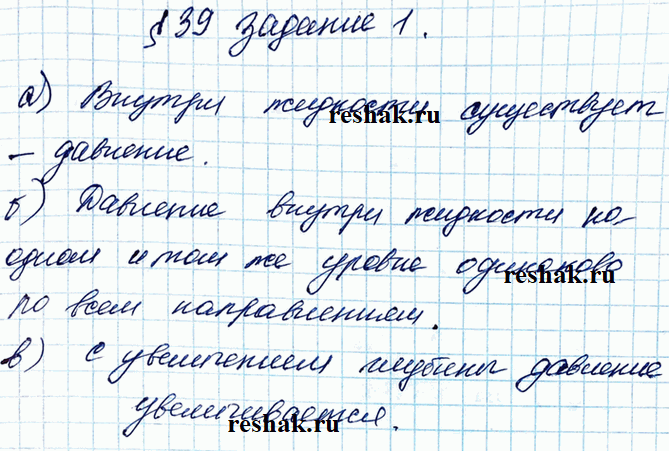 §39 Задание 1.
а) Внутри жидкости существует
reshak.ru
– давление.
б) Давление внутри жидкости на
одном и том же уровне одинаково
reshak.ru
по всем направлениям.
в) с увеличением глубины давление
увеличивается.
reshak.ru